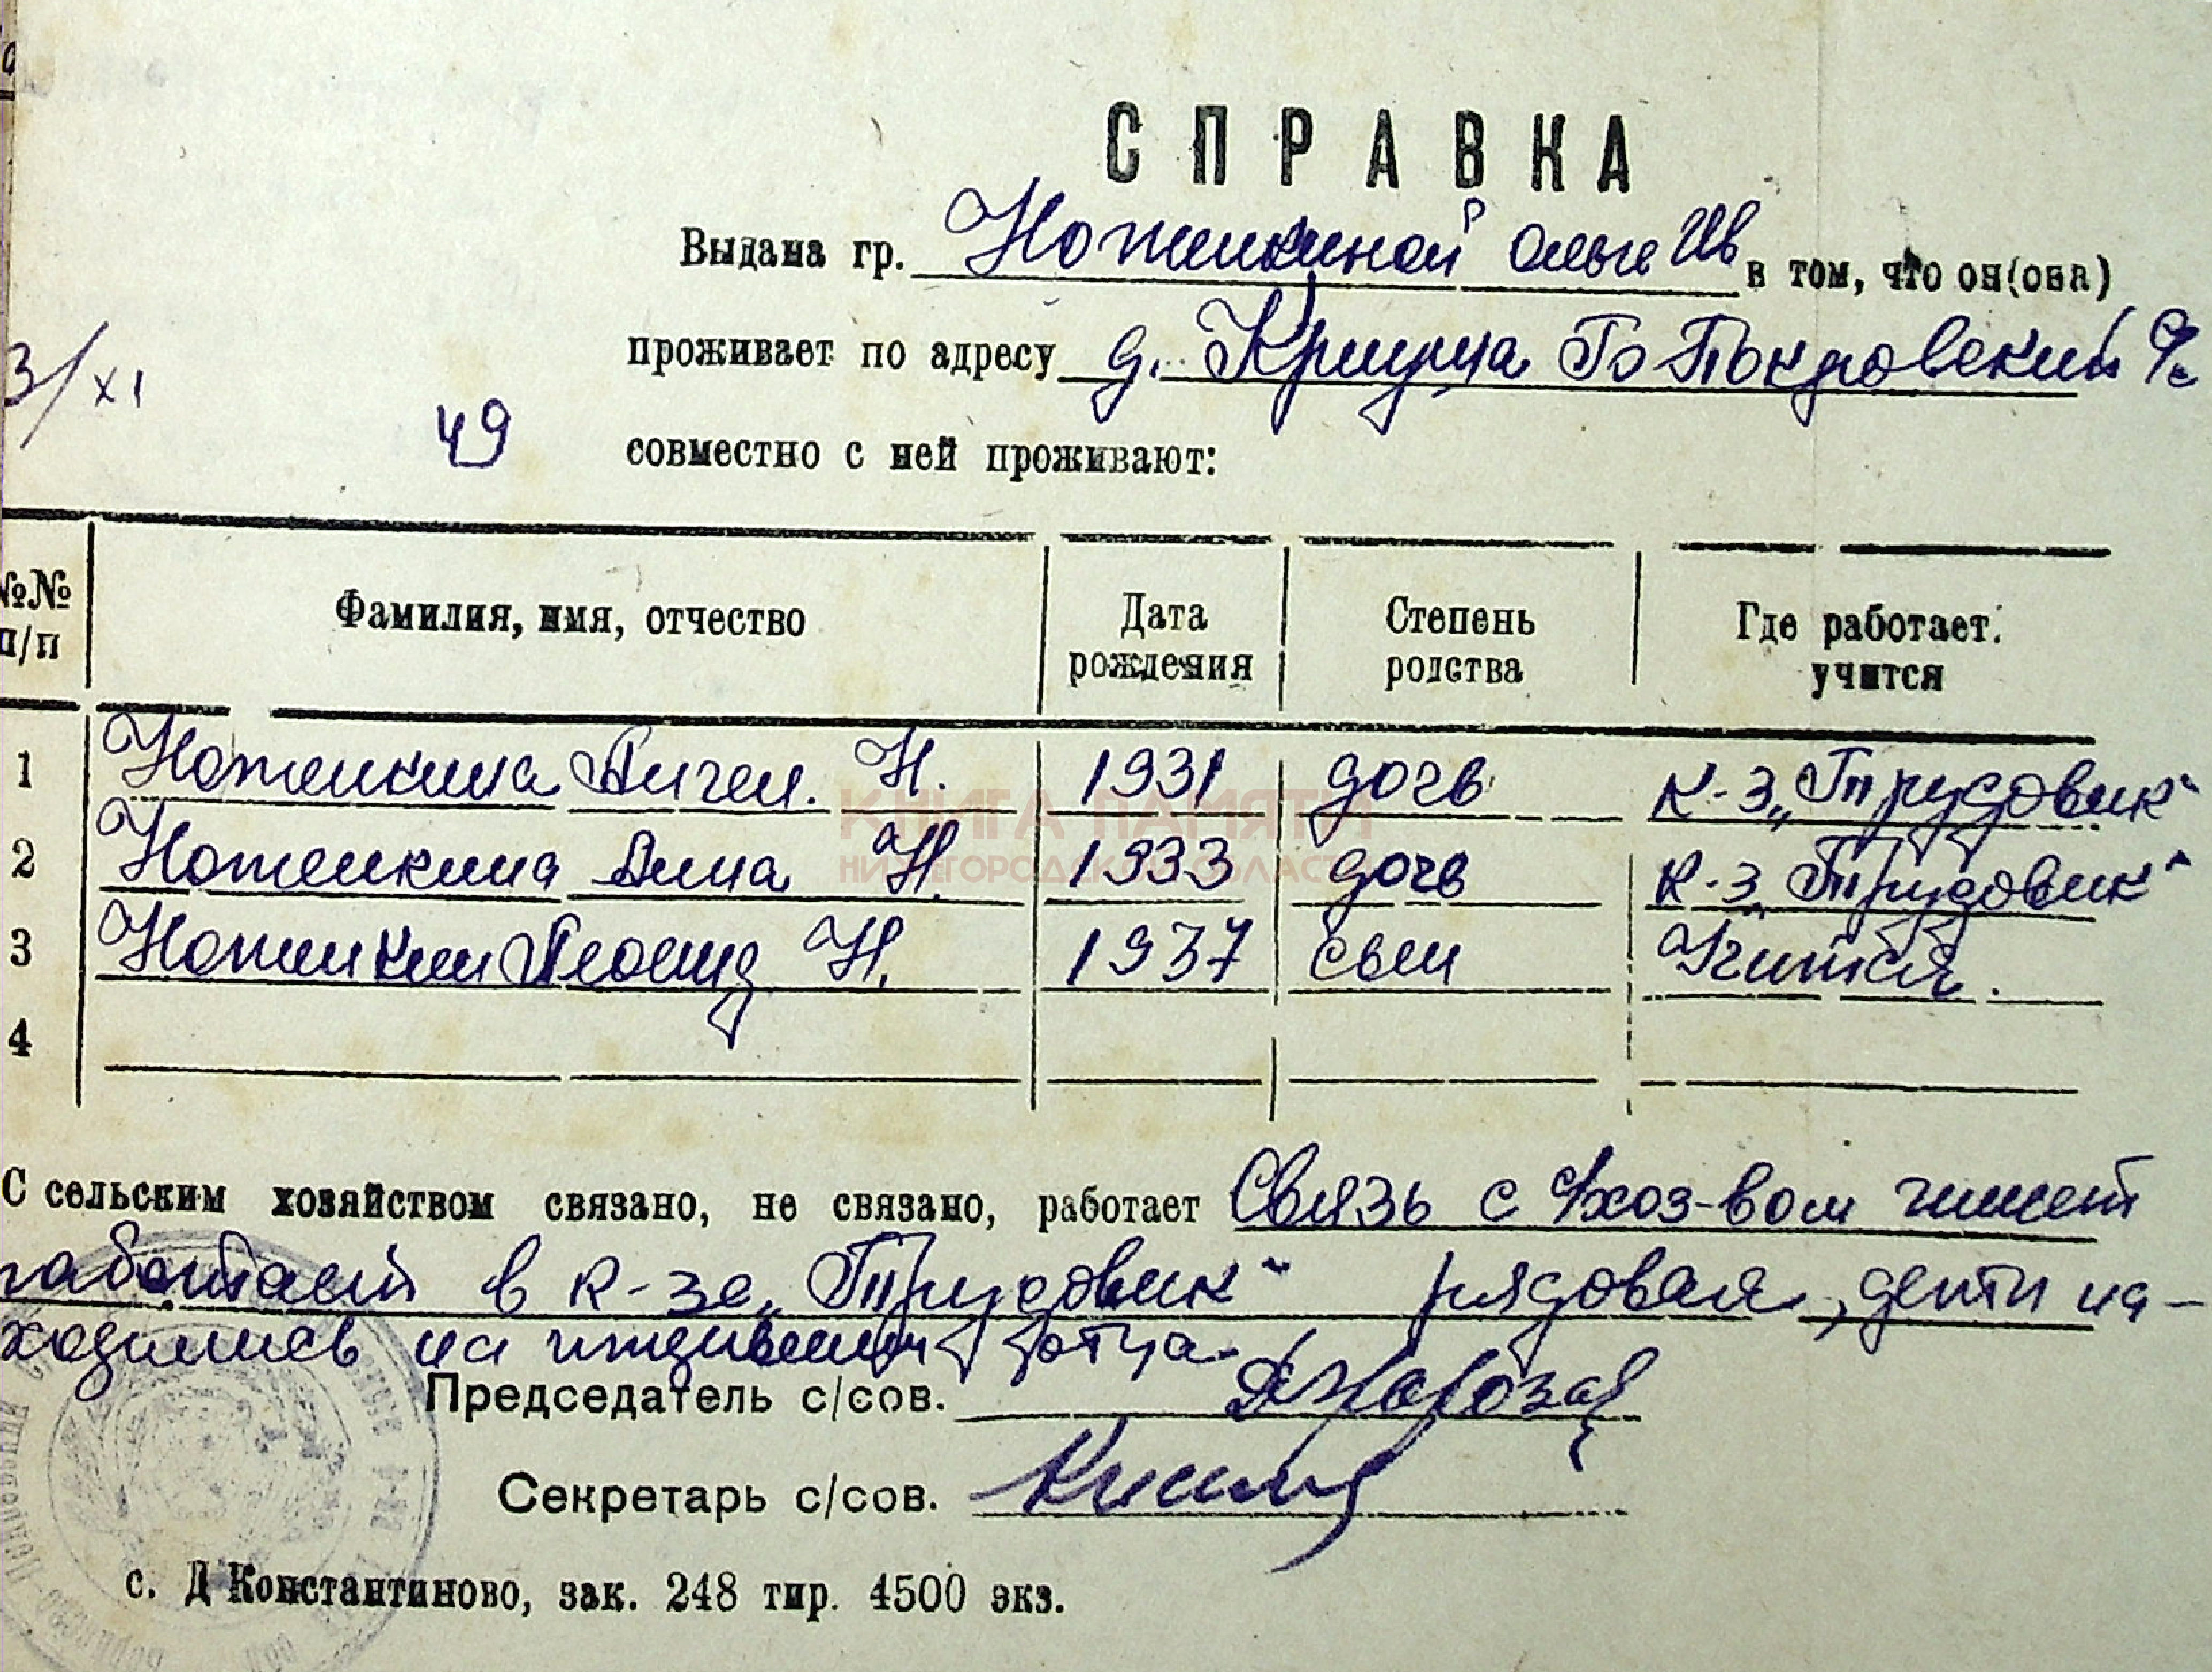 СПРАВКА
Выдана гр. Ноженкиной Ольге Ив в том, что он(она)
проживает по адресу д. Криуша Б Покровский
3/XI 49 совместно с ней проживают:
№№ п/п Фамилия, имя, отчество Дата рождения Степень родства Где работает. учится
1 Ноженкина Ангел. Н. 1931 дочь к-з „Трудовик“
2 Ноженкина Анна Н. 1933 дочь к-з „Трудовик“
3 Ноженкин Леонид Н. 1937 сын Учится.
4
КНИГА ПАМЯТИ
НИЖЕГОРОДСКОЙ ОБЛАСТИ
С сельским хозяйством связано, не связано, работает Связь с с/хоз-вом имеет
работает в к-зе „Трудовик“ рядовая, дети на-
ходились на иждивении отца.
Председатель с/сов.
Секретарь с/сов.
с. Д Константиново, зак. 248 тир. 4500 экз.